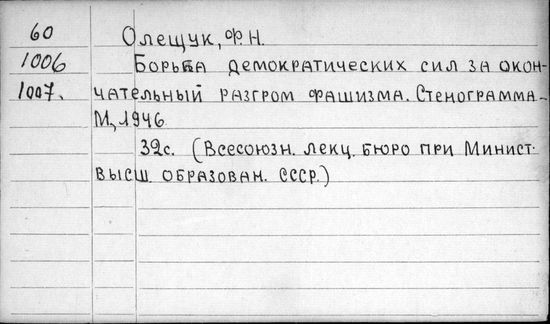 60 Олещук, Ф.Н.
1006 Борьба демократических сил за окон-
1007. чательный разгром фашизма. Стенограмма-
М., 1946
32с. (Всесоюзн. лекц. бюро при Минист.
высш. образован. СССР.)